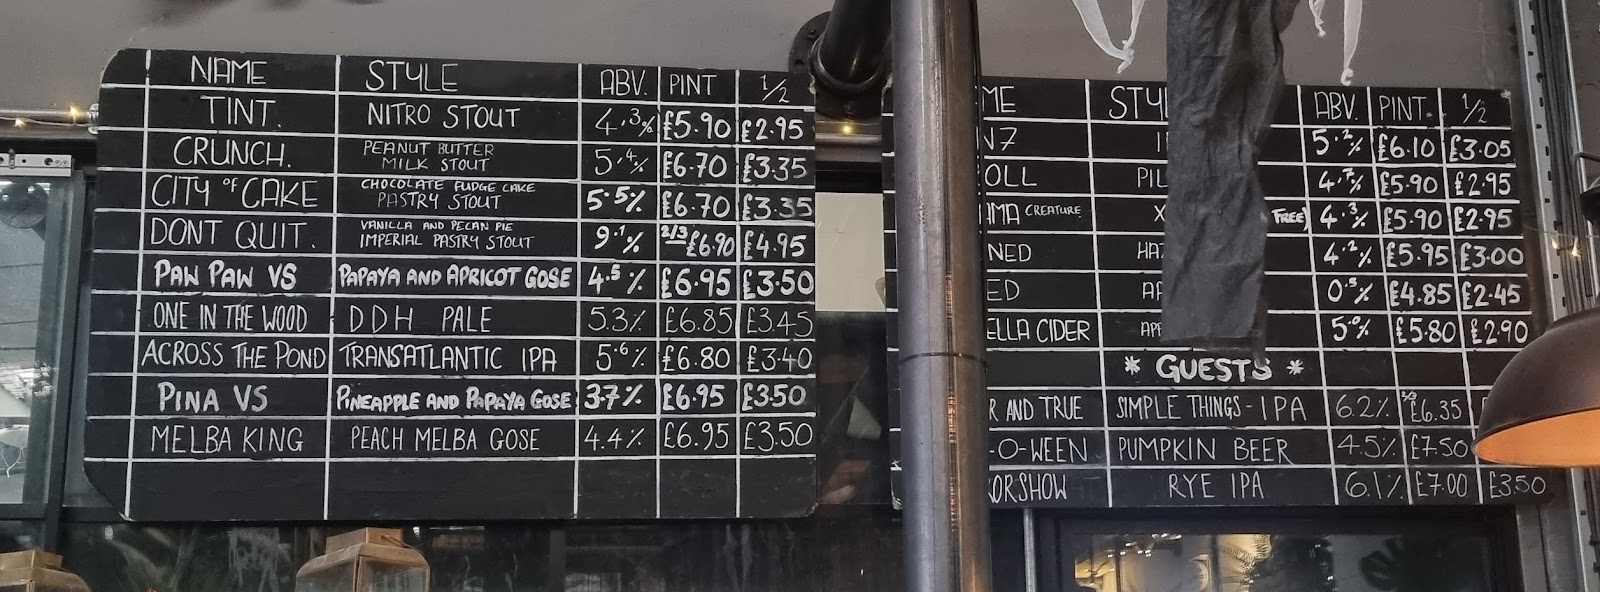 NAME STYLE ABV. PINT 1/2
TINT. NITRO STOUT 4.3% £5.90 £2.95
CRUNCH. PEANUT BUTTER MILK STOUT 5.4% £6.70 £3.35
CITY OF CAKE CHOCOLATE FUDGE CAKE PASTRY STOUT 5.5% £6.70 £3.35
DONT QUIT. VANILLA AND PECAN PIE IMPERIAL PASTRY STOUT 9.1% 2/3 £6.90 £4.95
PAW PAW VS PAPAYA AND APRICOT GOSE 4.5% £6.95 £3.50
ONE IN THE WOOD DDH PALE 5.3% £6.85 £3.45
ACROSS THE POND TRANSATLANTIC IPA 5.6% £6.80 £3.40
PINA VS PINEAPPLE AND PAPAYA GOSE 3.7% £6.95 £3.50
MELBA KING PEACH MELBA GOSE 4.4% £6.95 £3.50
ME STY ABV. PINT. 1/2
5.2% £6.10 £3.05
OLL PIL 4.7% £5.90 £2.95
AMA CREATURE FREE) 4.3% £5.90 £2.95
NED HA 4.2% £5.95 £3.00
ED 0.5% £4.85 £2.45
ELLA CIDER APP 5.0% £5.80 £2.90
* GUESTS *
R AND TRUE SIMPLE THINGS - IPA 6.2% 2/3 £6.35
-O-WEEN PUMPKIN BEER 4.5% £7.50
ORSHOW RYE IPA 6.1% £7.00 £3.50